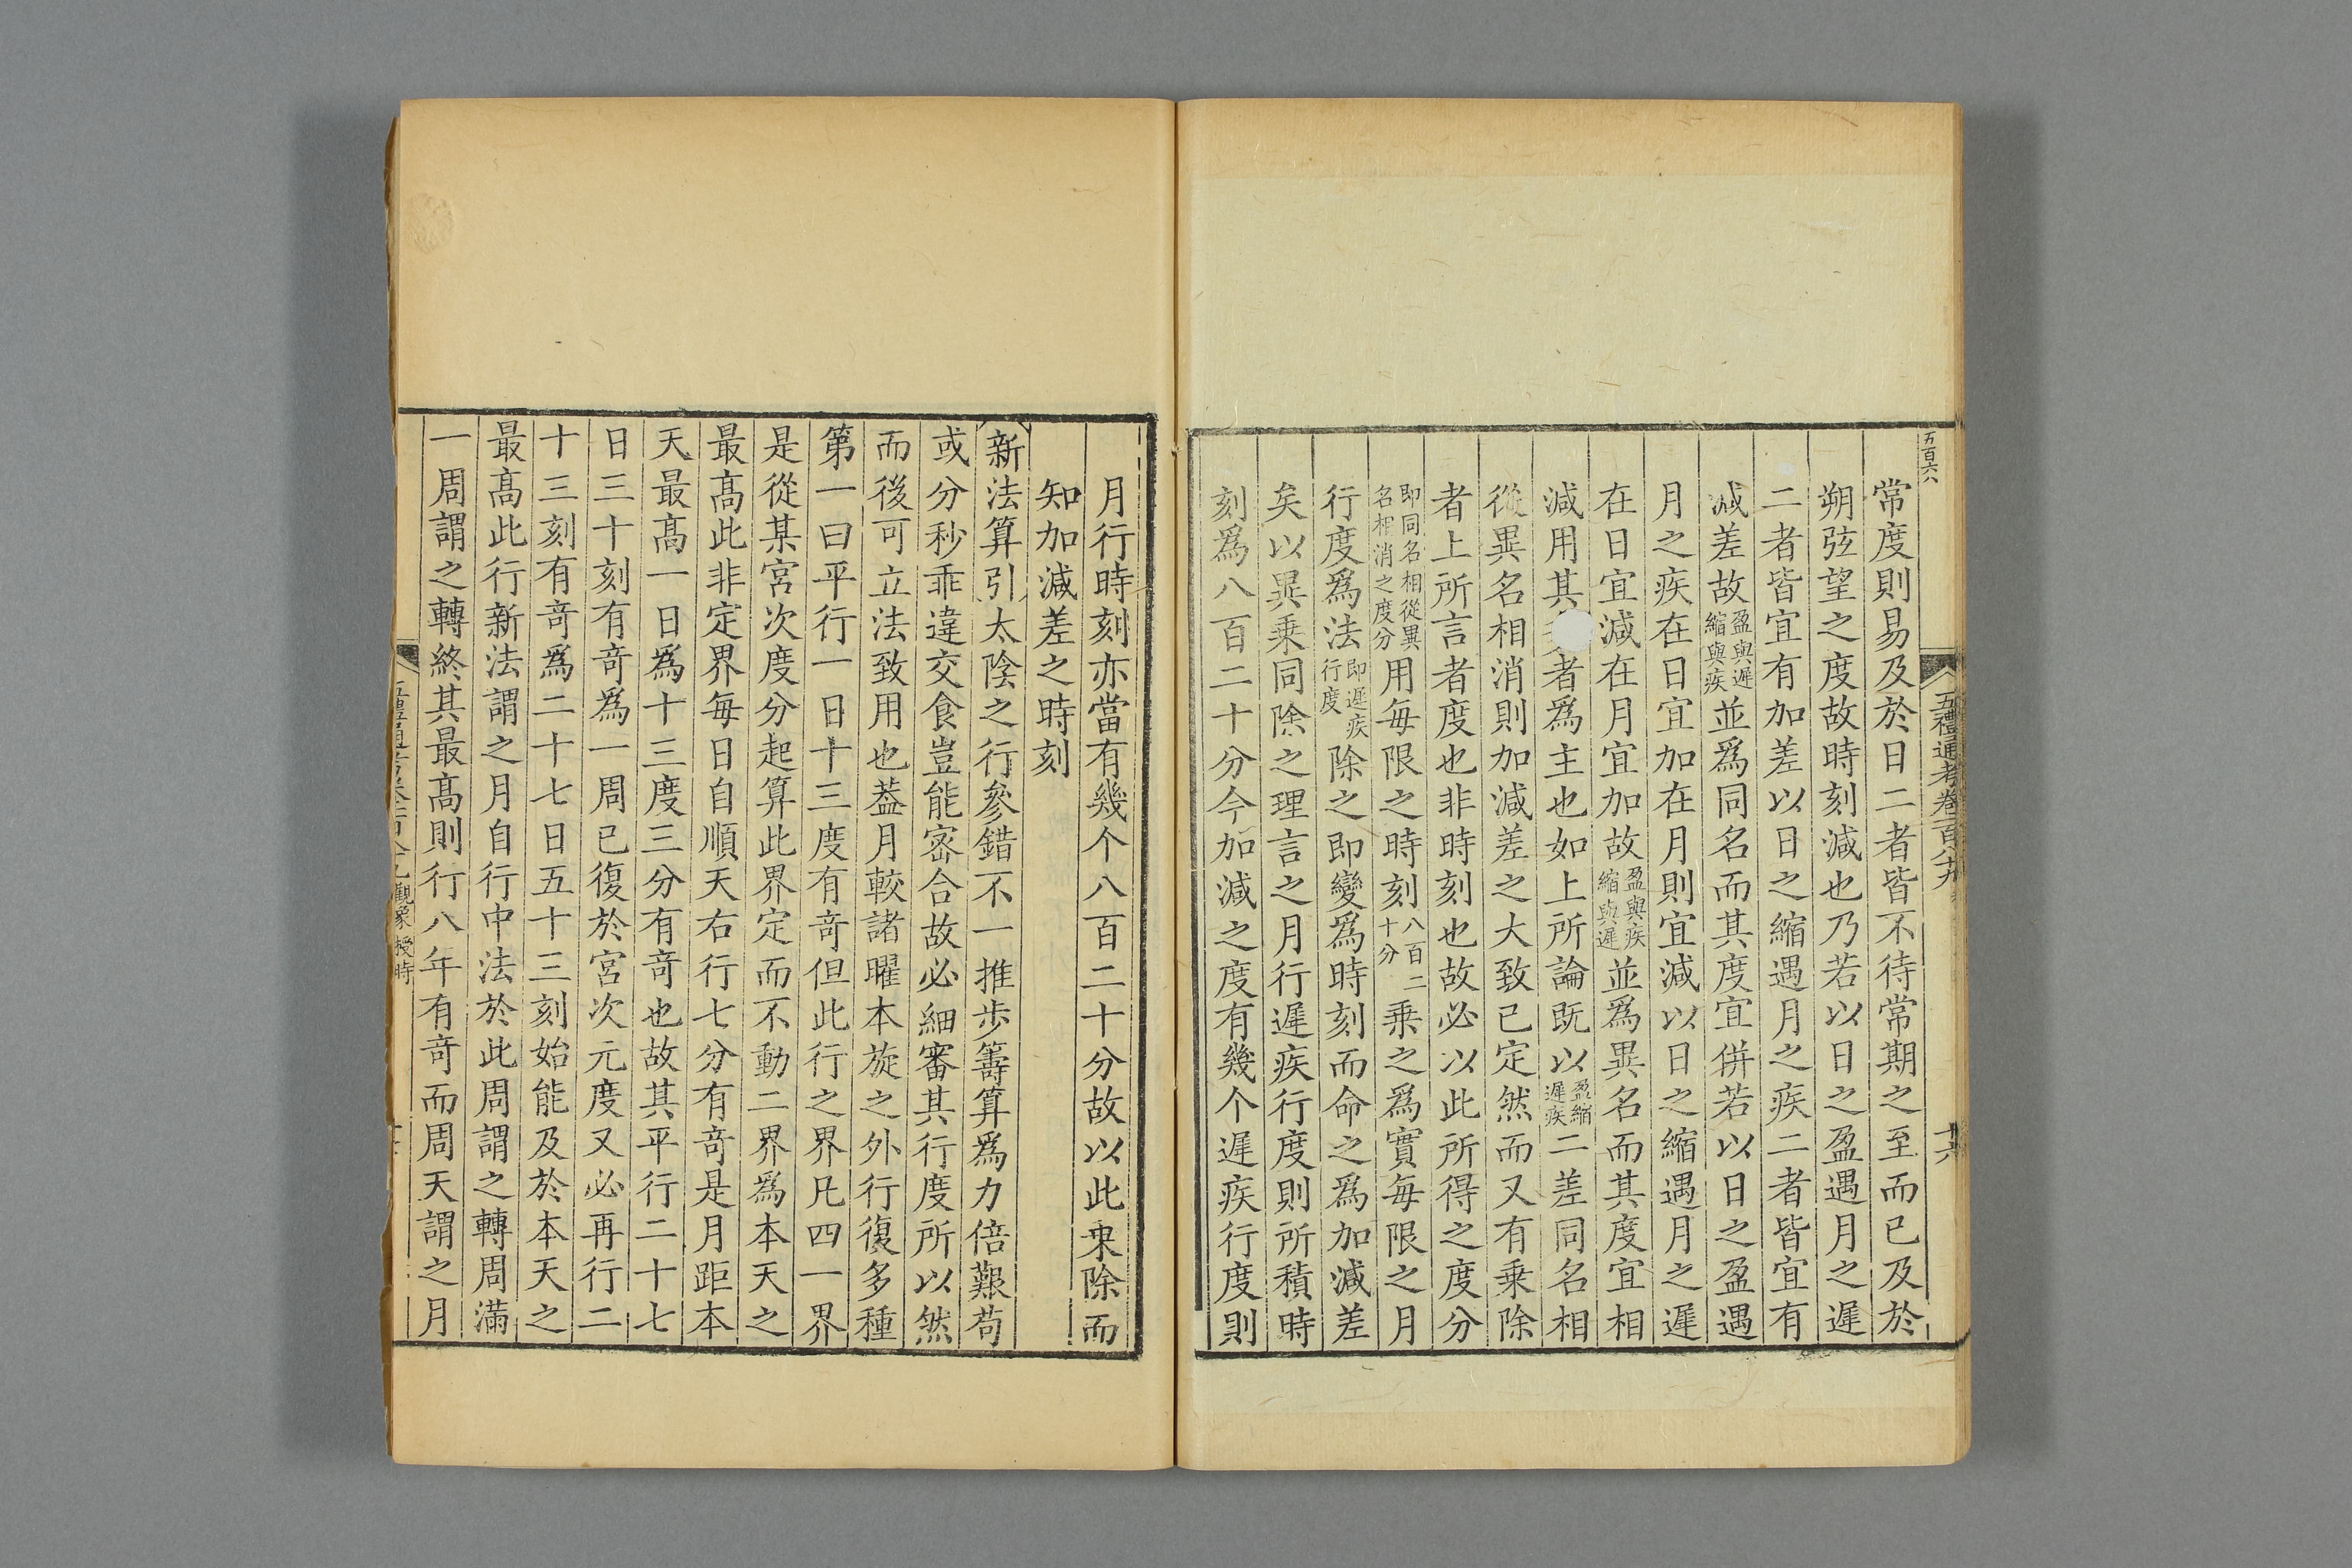 五百六
五禮通考卷百八十九
十六
常度則易及於日二者皆不待常期之至而已及於
朔弦望之度故時刻減也乃若以日之盈遇月之遲
二者皆宜有加差以日之縮遇月之疾二者皆宜有
減差故盈與遲縮與疾並爲同名而其度宜併若以日之盈遇
月之疾在日宜加在月則宜減以日之縮遇月之遲
在日宜減在月宜加故盈與疾縮與遲並爲異名而其度宜相
減用其者爲主也如上所論既以盈縮遲疾二差同名相
從異名相消則加減差之大致已定然而又有乘除
者上所言者度也非時刻也故必以此所得之度分
即同名相從異名相消之度分用每限之時刻八百二十分乘之爲實每限之月
行度爲法即遲疾行度除之即變爲時刻而命之爲加減差
矣以異乘同除之理言之月行遲疾行度則所積時
刻爲八百二十分今加減之度有幾个遲疾行度則
月行時刻亦當有幾个八百二十分故以此乘除而
知加減差之時刻
新法算引太陰之行參錯不一推步籌算爲力倍艱苟
或分秒乖違交食豈能密合故必細審其行度所以然
而後可立法致用也蓋月較諸曜本旋之外行復多種
第一曰平行一日十三度有奇但此行之界凡四一界
是從某宮次度分起算此界定而不動二界爲本天之
最高此非定界每日自順天右行七分有奇是月距本
天最高一日爲十三度三分有奇也故其平行二十七
日三十刻有奇爲一周已復於宮次元度又必再行二
十三刻有奇爲二十七日五十三刻始能及於本天之
最高此行新法謂之月自行中法於此周謂之轉周滿
一周謂之轉終其最高則行八年有奇而周天謂之月
觀象授時